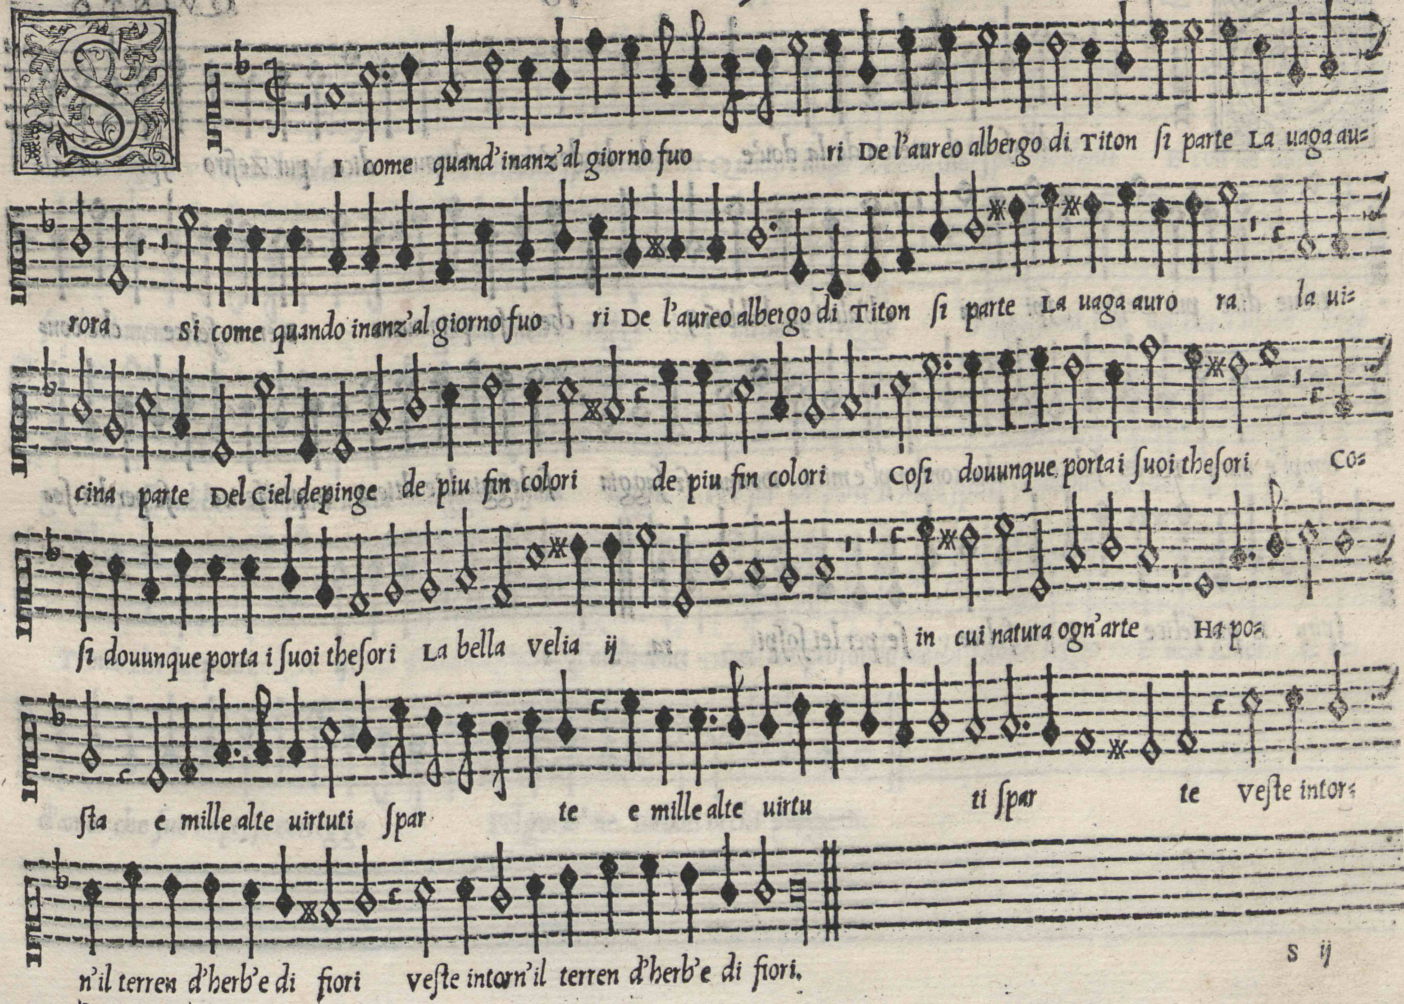 SI come quand'inanz'al giorno fuo ri De l'aureo albergo di Titon si parte La uaga au=
rora Si come quando inanz'al giorno fuo ri De l'aureo albergo di Titon si parte La uaga auro ra la ui=
cina parte Del Ciel depinge de piu fin colori de piu fin colori Cosi douunque porta i suoi thesori Co=
si douunque porta i suoi thesori La bella Velia ij in cui natura ogn'arte Ha po=
sta e mille alte uirtuti spar te e mille alte uirtu ti spar te Veste intor=
n'il terren d'herb'e di fiori Veste intorn'il terren d'herb'e di fiori.
S ij